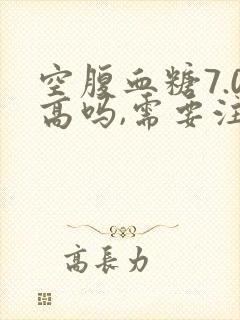 空腹血糖7.0
高吗,需要注
高長力